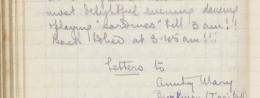 most delightful evening dancing
& playing "sardines" till 3 am!!!
Back home at 3.45 am!!!
Letters to
Aunty Mary